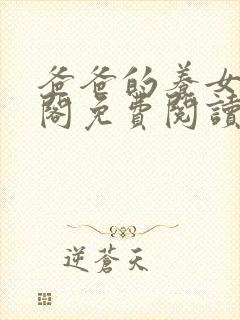 爸爸的養女
閣免費閱讀
逆蒼天